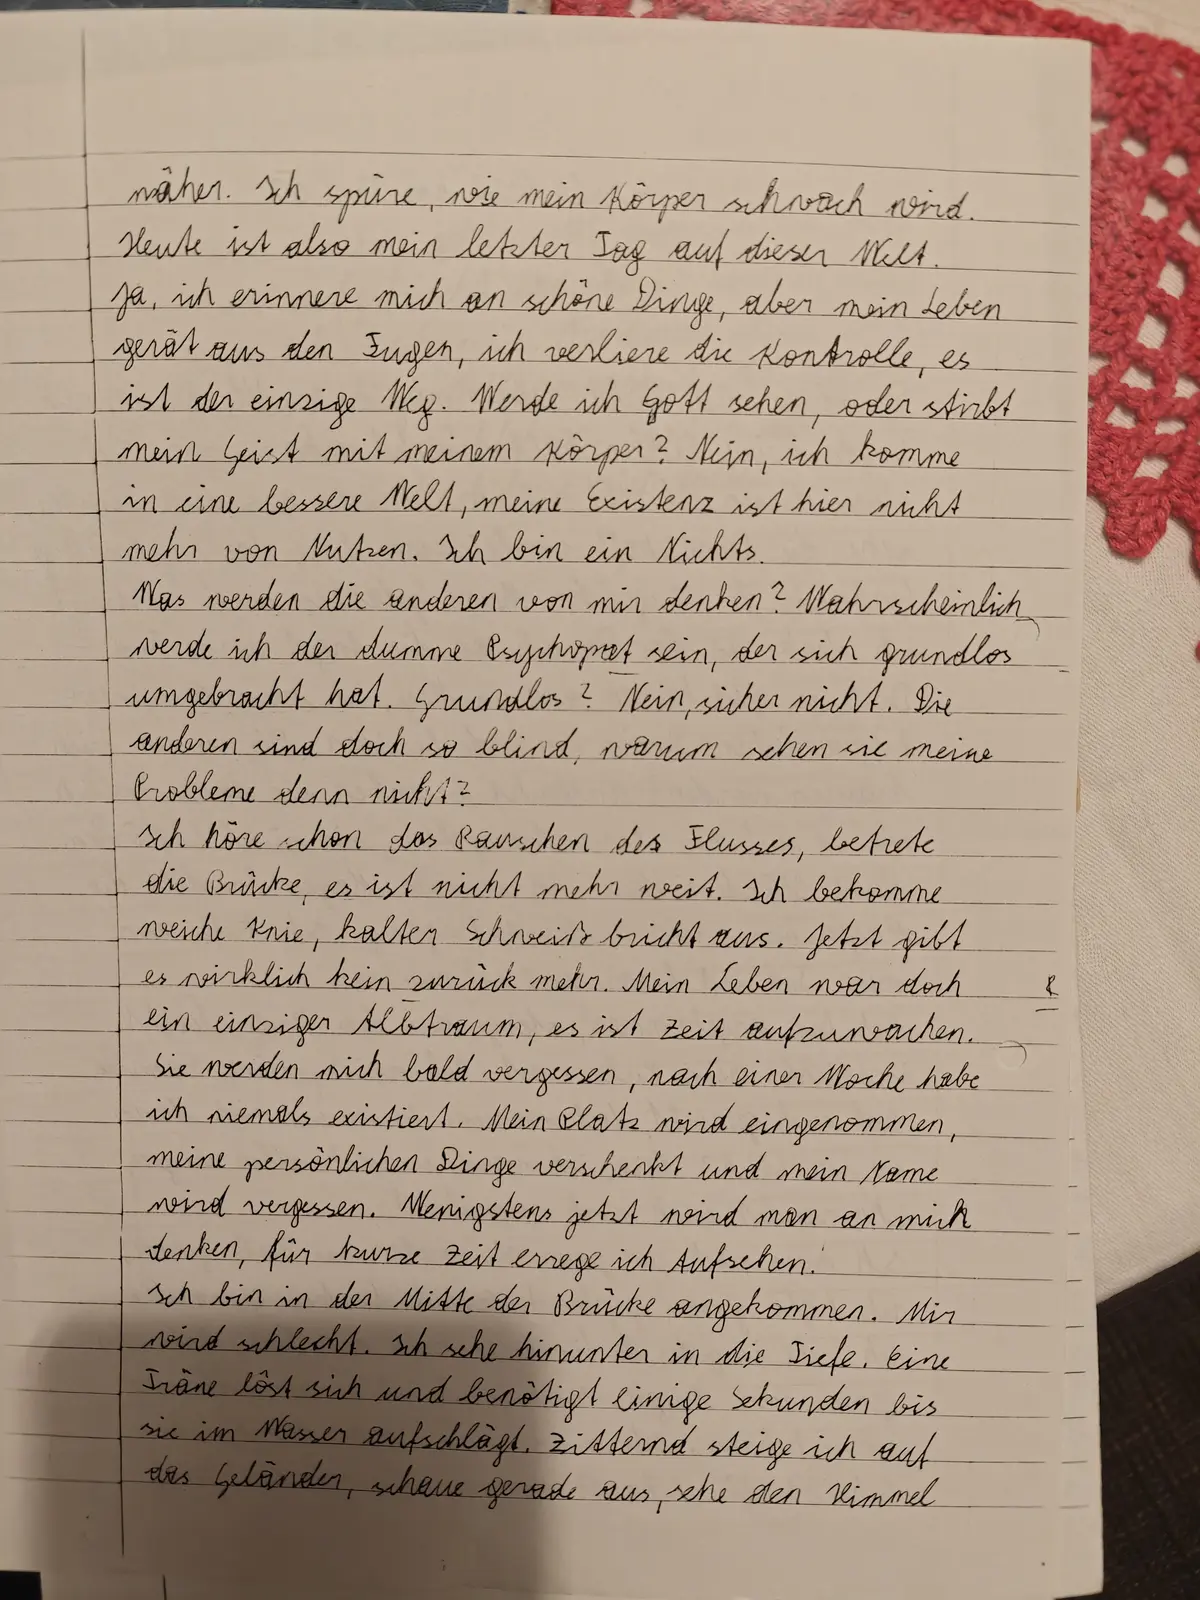 näher. Ich spüre, wie mein Körper schwach wird.
Heute ist also mein letzter Tag auf dieser Welt.
Ja, ich erinnere mich an schöne Dinge, aber mein Leben
gerät aus den Fugen, ich verliere die Kontrolle, es
ist der einzige Weg. Werde ich Gott sehen, oder stirbt
mein Geist mit meinem Körper? Nein, ich komme
in eine bessere Welt, meine Existenz ist hier nicht
mehr von Nutzen. Ich bin ein Nichts.
Was werden die anderen von mir denken? Wahrscheinlich
werde ich der dumme Psychopat sein, der sich grundlos
umgebracht hat. Grundlos? Nein, sicher nicht. Die
anderen sind doch so blind, warum sehen sie meine
Probleme denn nicht?
Ich höre schon das Rauschen des Flusses, betrete
die Brücke, es ist nicht mehr weit. Ich bekomme
weiche Knie, kalter Schweiß bricht aus. Jetzt gibt
es wirklich kein zurück mehr. Mein Leben war doch
ein einziger Albtraum, es ist Zeit aufzuwachen.
Sie werden mich bald vergessen, nach einer Woche habe
ich niemals existiert. Mein Platz wird eingenommen,
meine persönlichen Dinge verschenkt und mein Name
wird vergessen. Wenigstens jetzt wird man an mich
denken, für kurze Zeit errege ich Aufsehen.
Ich bin in der Mitte der Brücke angekommen. Mir
wird schlecht. Ich sehe hinunter in die Tiefe. Eine
Träne löst sich und benötigt einige Sekunden bis
sie im Wasser aufschlägt. Zitternd steige ich auf
das Geländer, schaue gerade aus, sehe den Himmel